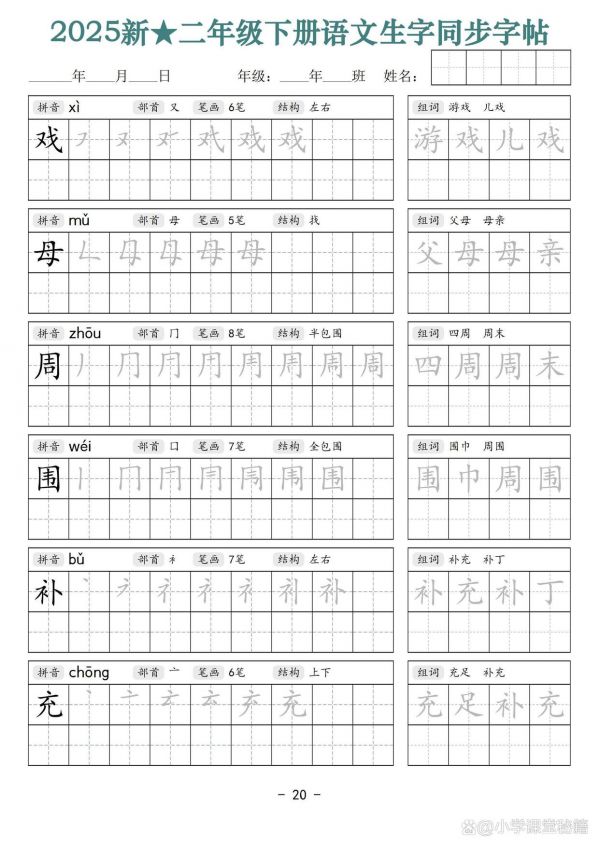 2025新★二年级下册语文生字同步字帖
____年___月___日 年级：___年___班 姓名：
拼音 xì 部首 又 笔画 6笔 结构 左右 组词 游戏 儿戏
戏 戏 游戏儿戏
拼音 mǔ 部首 母 笔画 5笔 结构 找 组词 父母 母亲
母 母 父母母亲
拼音 zhōu 部首 冂 笔画 8笔 结构 半包围 组词 四周 周末
周 周 四周周末
拼音 wéi 部首 囗 笔画 7笔 结构 全包围 组词 围巾 周围
围 围 围巾周围
拼音 bǔ 部首 衤 笔画 7笔 结构 左右 组词 补充 补丁
补 补 补充补丁
拼音 chōng 部首 亠 笔画 6笔 结构 上下 组词 充足 补充
充 充 充足补充
- 20 -
@小学课堂秘籍